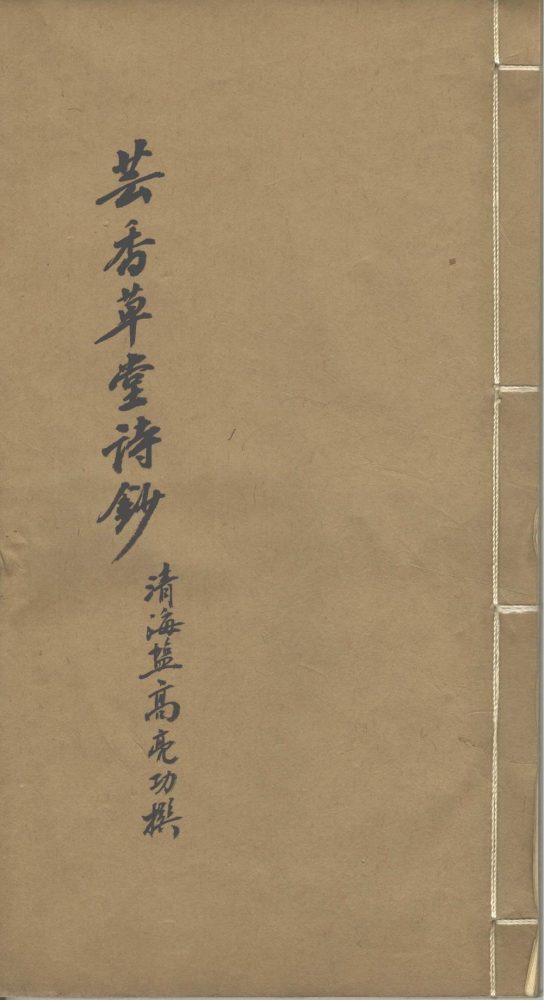 芸香草堂詩鈔
清海盐高亮功撰